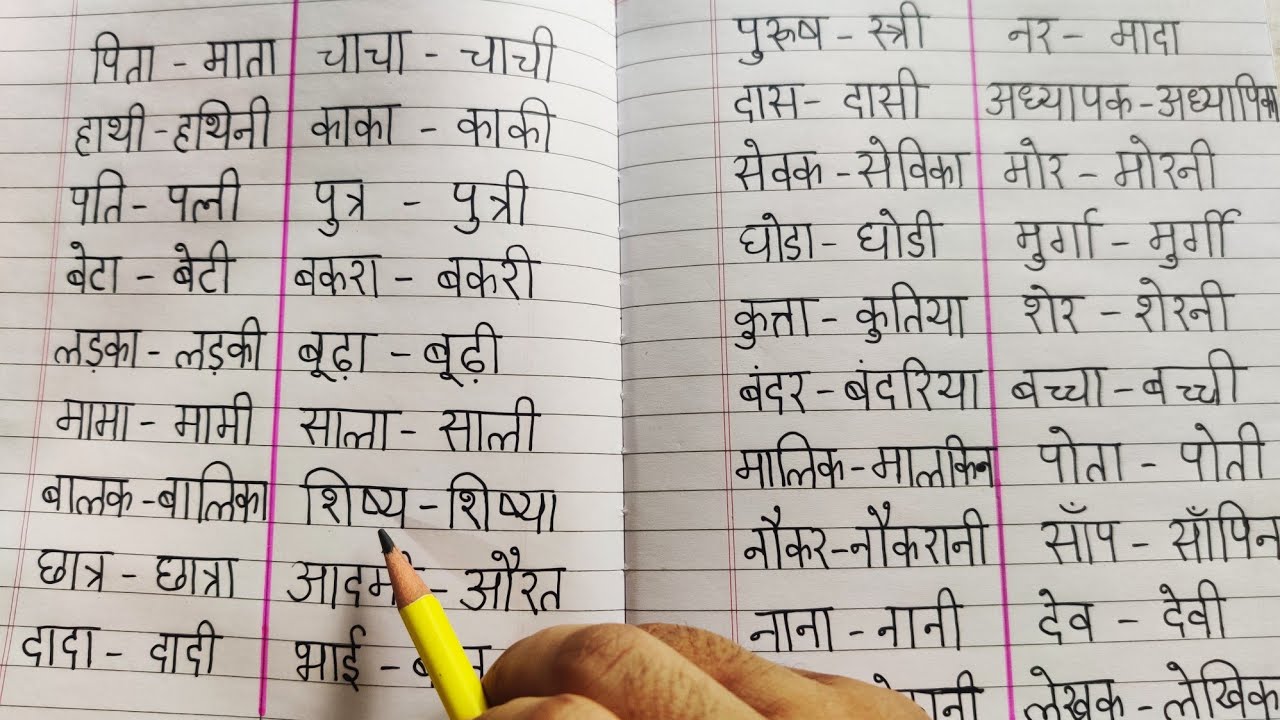 पिता - माता
हाथी - हथिनी
पति - पत्नी
बेटा - बेटी
लड़का - लड़की
मामा - मामी
बालक - बालिका
छात्र - छात्रा
दादा - दादी
चाचा - चाची
काका - काकी
पुत्र - पुत्री
बकरा - बकरी
बूढ़ा - बूढ़ी
साला - साली
शिष्य - शिष्या
- औरत
भाई -
पुरुष - स्त्री
दास - दासी
सेवक - सेविका
घोडा - घोडी
कुत्ता - कुतिया
बंदर - बंदरिया
मालिक - मालकिन
नौकर - नौकरानी
नाना - नानी
नर - मादा
अध्यापक - अध्यापिका
मोर - मोरनी
मुर्गा - मुर्गी
शेर - शेरनी
बच्चा - बच्ची
पोता - पोती
साँप - साँपिन
देव - देवी
लेखक - लेखिक